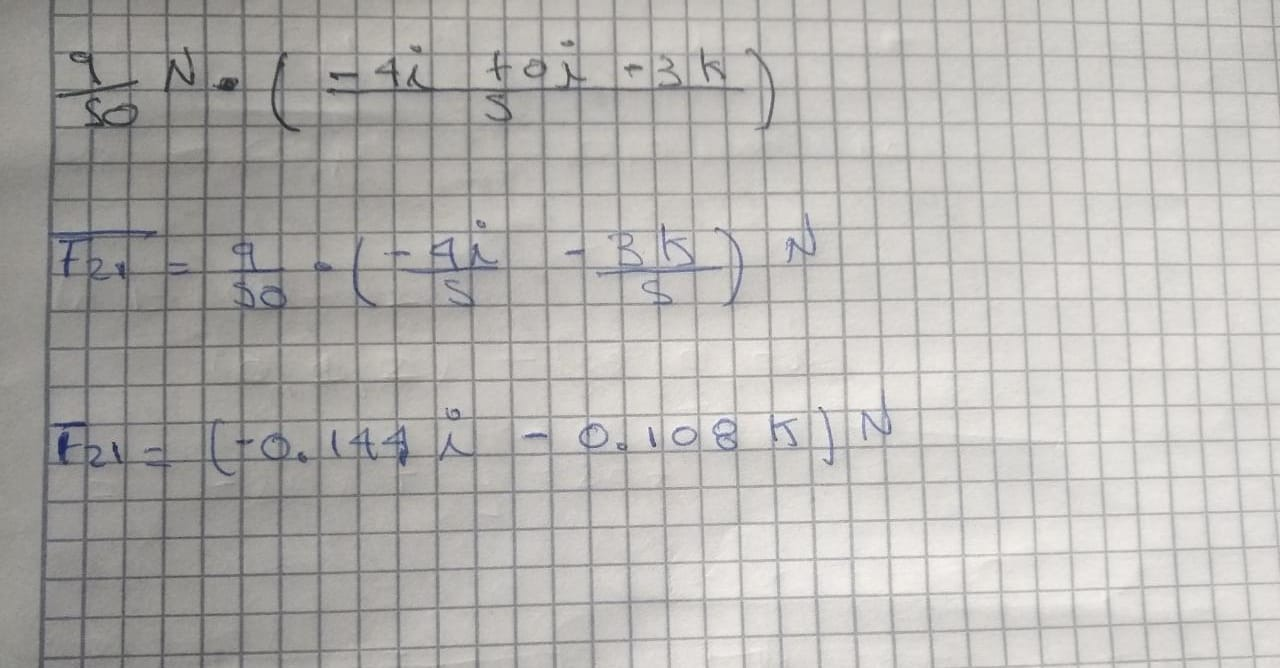 9/50 N · ( (-4i + 0j - 3k)/5 )
F21 = 9/50 · ( -4i/5 - 3k/5 ) N
F21 = (-0.144 i - 0.108 k) N